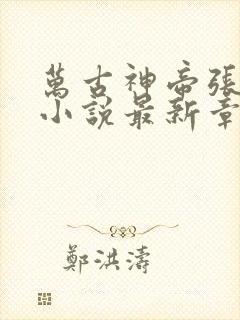 萬古神帝張
小說最新章
鄭洪濤